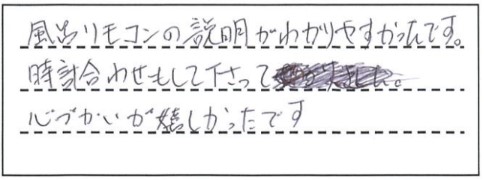 風呂リモコンの説明がわかりやすかったです。
時計合わせもして下さって
心づかいが嬉しかったです